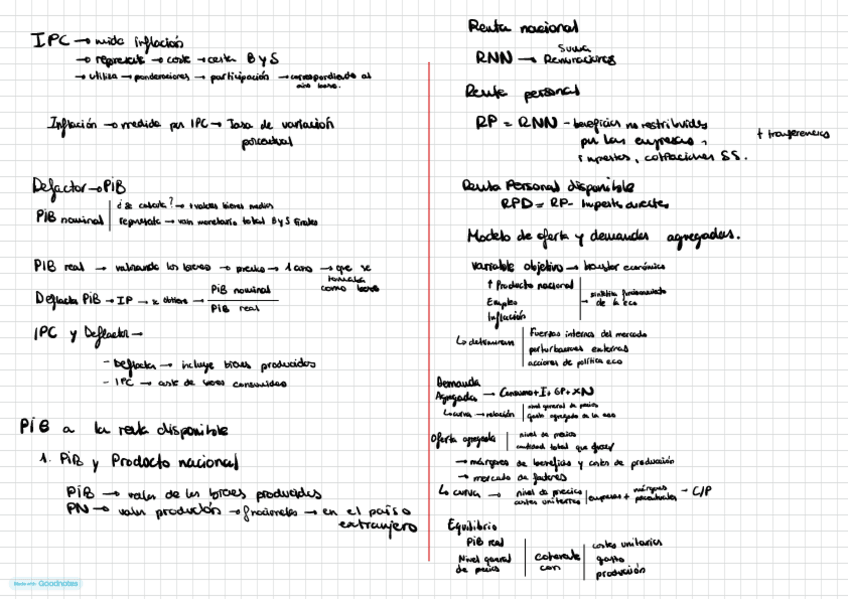 IPC → mide inflación
→ representa → coste → cesta B y S
→ utiliza → ponderaciones → participación → correspondiente al
año base.
Inflación → medida por IPC → Tasa de variación
porcentual
Deflactor → PiB
PiB nominal
¿Se calcula? →
representa → valor monetario total B y S finales
PiB real → valorando los bienes → precios → 1 año → que se
tomará
como base
Deflactor PiB → IP → se obtiene → PiB nominal
PiB real
IPC y Deflactor →
- Deflactor → incluye bienes producidos
- IPC → coste de bienes consumidos
PiB a la renta disponible
1. PiB y Producto nacional
PiB → valor de los bienes producidos
PN → valor producción → f nacionales → en el país o
extranjero
Renta nacional
RNN → Suma
Remuneraciones
Renta personal
RP = RNN - beneficios no restribuidos
por las empresas,
impuestos, cotizaciones SS.
+ transferencias
Renta Personal disponible
RPD = RP - Impuestos directos
Modelo de oferta y demandas agregadas.
Variable objetivo → bienestar económico
↑ Producto nacional
Empleo
Inflación
→ sintetiza funcionamiento
de la eco
↳ determinan
Fuerzas internas del mercado
perturbaciones externas
acciones de política eco
Demanda
Agregada → Consumo + I + GP + XN
↳ curva → relación
nivel general de precios
gasto agregado de la eco
Oferta agregada
nivel de precios
cantidad total que
→ márgenes de beneficio y costes de producción
→ mercado de factores
↳ curva → nivel de precios
costes unitarios
empresas + márgenes
porcentuales
- C/P
Equilibrio
PiB real
Nivel general
de precios
coherente
con
costes unitarios
gasto
producción
Made with Goodnotes